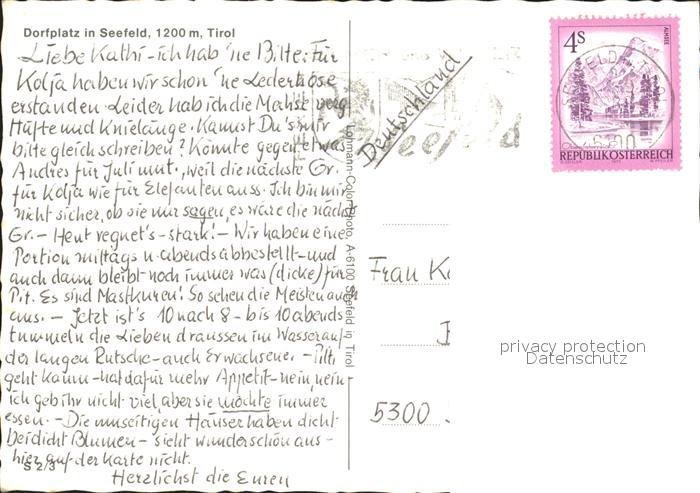 Dorfplatz in Seefeld, 1200 m, Tirol
Liebe Kathi - ich hab 'ne Bitte: Für
Kolja haben wir schon 'ne Lederhose
erstanden. Leider hab ich die Maße verg.
Hüfte und Knielänge. Kannst Du's mir
bitte gleich schreiben? Könnte gegen etwas
Andres für Juli umt., weil die nächste Gr.
für Kolja wie für Elefanten auss. Ich bin mir
nicht sicher, ob sie nur sagen, es wäre die nächst
Gr. - Heut regnet's - stark! - Wir haben eine
Portion mittags u. abends abbestellt - und
auch dann bleibt noch immer was (dicke) für
Pit. Es sind Mastkuren! So sehen die Meisten auch
aus. - Jetzt ist's 10 nach 8 - bis 10 abends
tummeln die Lieben draussen im Wasser auf
der langen Rutsche - auch Erwachsene. - Pilli
geht kaum - hat dafür mehr Appetit - nein nein -
ich geb ihr nicht viel, aber sie möchte immer
essen. - Die umseitigen Häuser haben dicht
bei dicht Blumen - sieht wunderschön aus -
hier auf der Karte nicht.
S 2/3
Herzlichst die Euren
Hofmann-Color-Photo, A-6100 Seefeld in Tirol
Deutschland
Seefeld
4S
ALMSEE
REPUBLIK ÖSTERREICH
Frau K
5300
privacy protection
Datenschutz